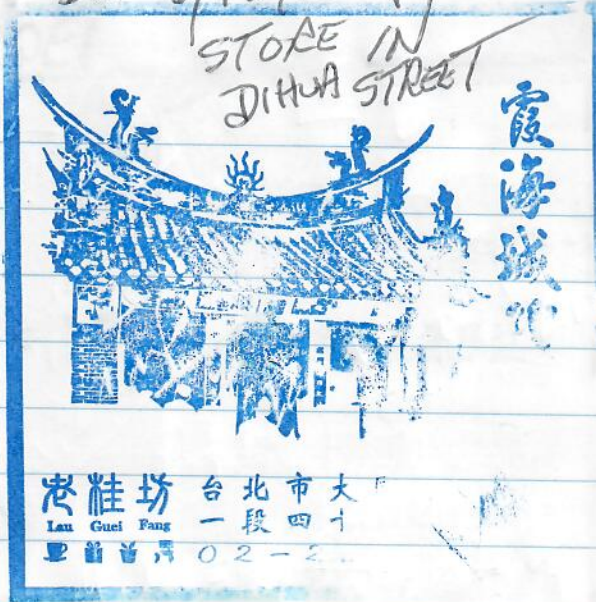 STORE IN
DIHUA STREET
霞海城
老桂坊
Lau Guei Fang
台北市大
一段四十
02-2